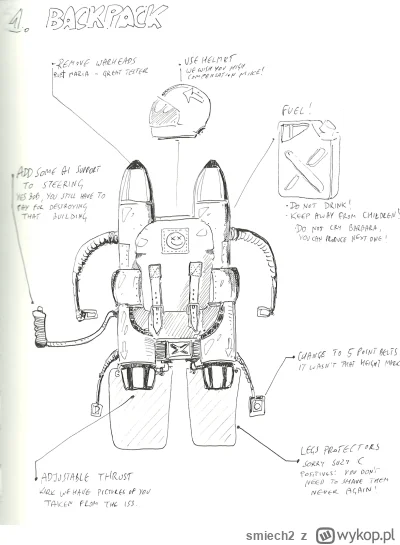 1. BACKPACK
REMOVE WARHEADS
MARIA - GREAT TESTER
USE HELMET
WE WISH YOU HIGH
COMPENSATION MIKE!
FUEL!
- DO NOT DRINK!
- KEEP AWAY FROM CHILDREN!
DO NOT CRY BARBARA,
YOU CAN PRODUCE NEXT ONE!
ADD SOME AI SUPPORT
TO STEERING
YES BOB, YOU STILL HAVE TO
PAY FOR DESTROYING
THAT BUILDING
CHANGE TO 5 POINT BELTS
IT WASN'T THAT HEIGHT MARK
LEGS PROTECTORS
SORRY SUZY C
POSITIVES: YOU DON'T
NEED TO SHAVE THEM
NEVER AGAIN!
ADJUSTABLE THRUST
WE HAVE PICTURES OF YOU
TAKEN FROM THE ISS.
smiech2 z wykop.pl